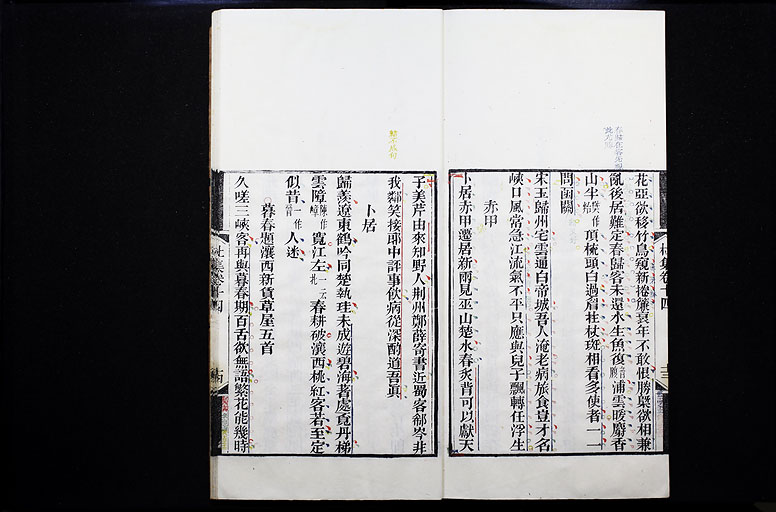 花亞欲移竹鳥窺新捲簾衰年不敢恨勝槩欲相兼
亂後居難定春歸客未還水生魚復浦雲暖麝香
山半頂梳頭白過眉拄杖斑相看多使者一一
問函關
宋玉歸州宅雲通白帝城吾人淹老病旅食豈才名
峽口風常急江流氣不平只應與兒子飄轉任浮生
赤甲
卜居赤甲遷居新兩見巫山楚水春炙背可以獻天
杜集卷十四
子美芹由來知野人荆州鄭薛寄書近蜀客郗岑非
我鄰笑接郎中評事飲病從深酌道吾眞
卜居
歸羨遼東鶴吟同楚執珪未成遊碧海著處覓丹梯
雲障寬江左春耕破瀼西桃紅客若至定
似昔一作人迷
暮春題瀼西新賃草屋五首
久嗟三峽客再與暮春期百舌欲無語繁花能幾時